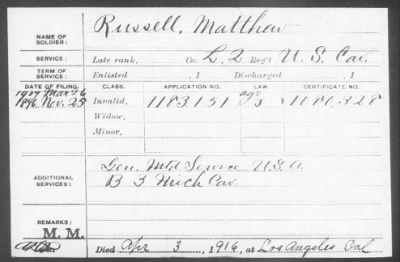 NAME OF SOLDIER: Russell, Matthew
SERVICE: Late rank, Co. L. 2 Reg't U. S. Cav.
TERM OF SERVICE: Enlisted , 1 Discharged , 1
DATE OF FILING. CLASS. APPLICATION NO. LAW CERTIFICATE NO.
1907 Mar 26
1896 Nov. 25 Invalid, 1183151 1080.328
Widow,
Minor,
ADDITIONAL SERVICES: Gen. Mtd Service U.S.A.
B 3 Mich Cav.
REMARKS: M. M.
Died Apr 3 , 1916, at Los Angeles Cal